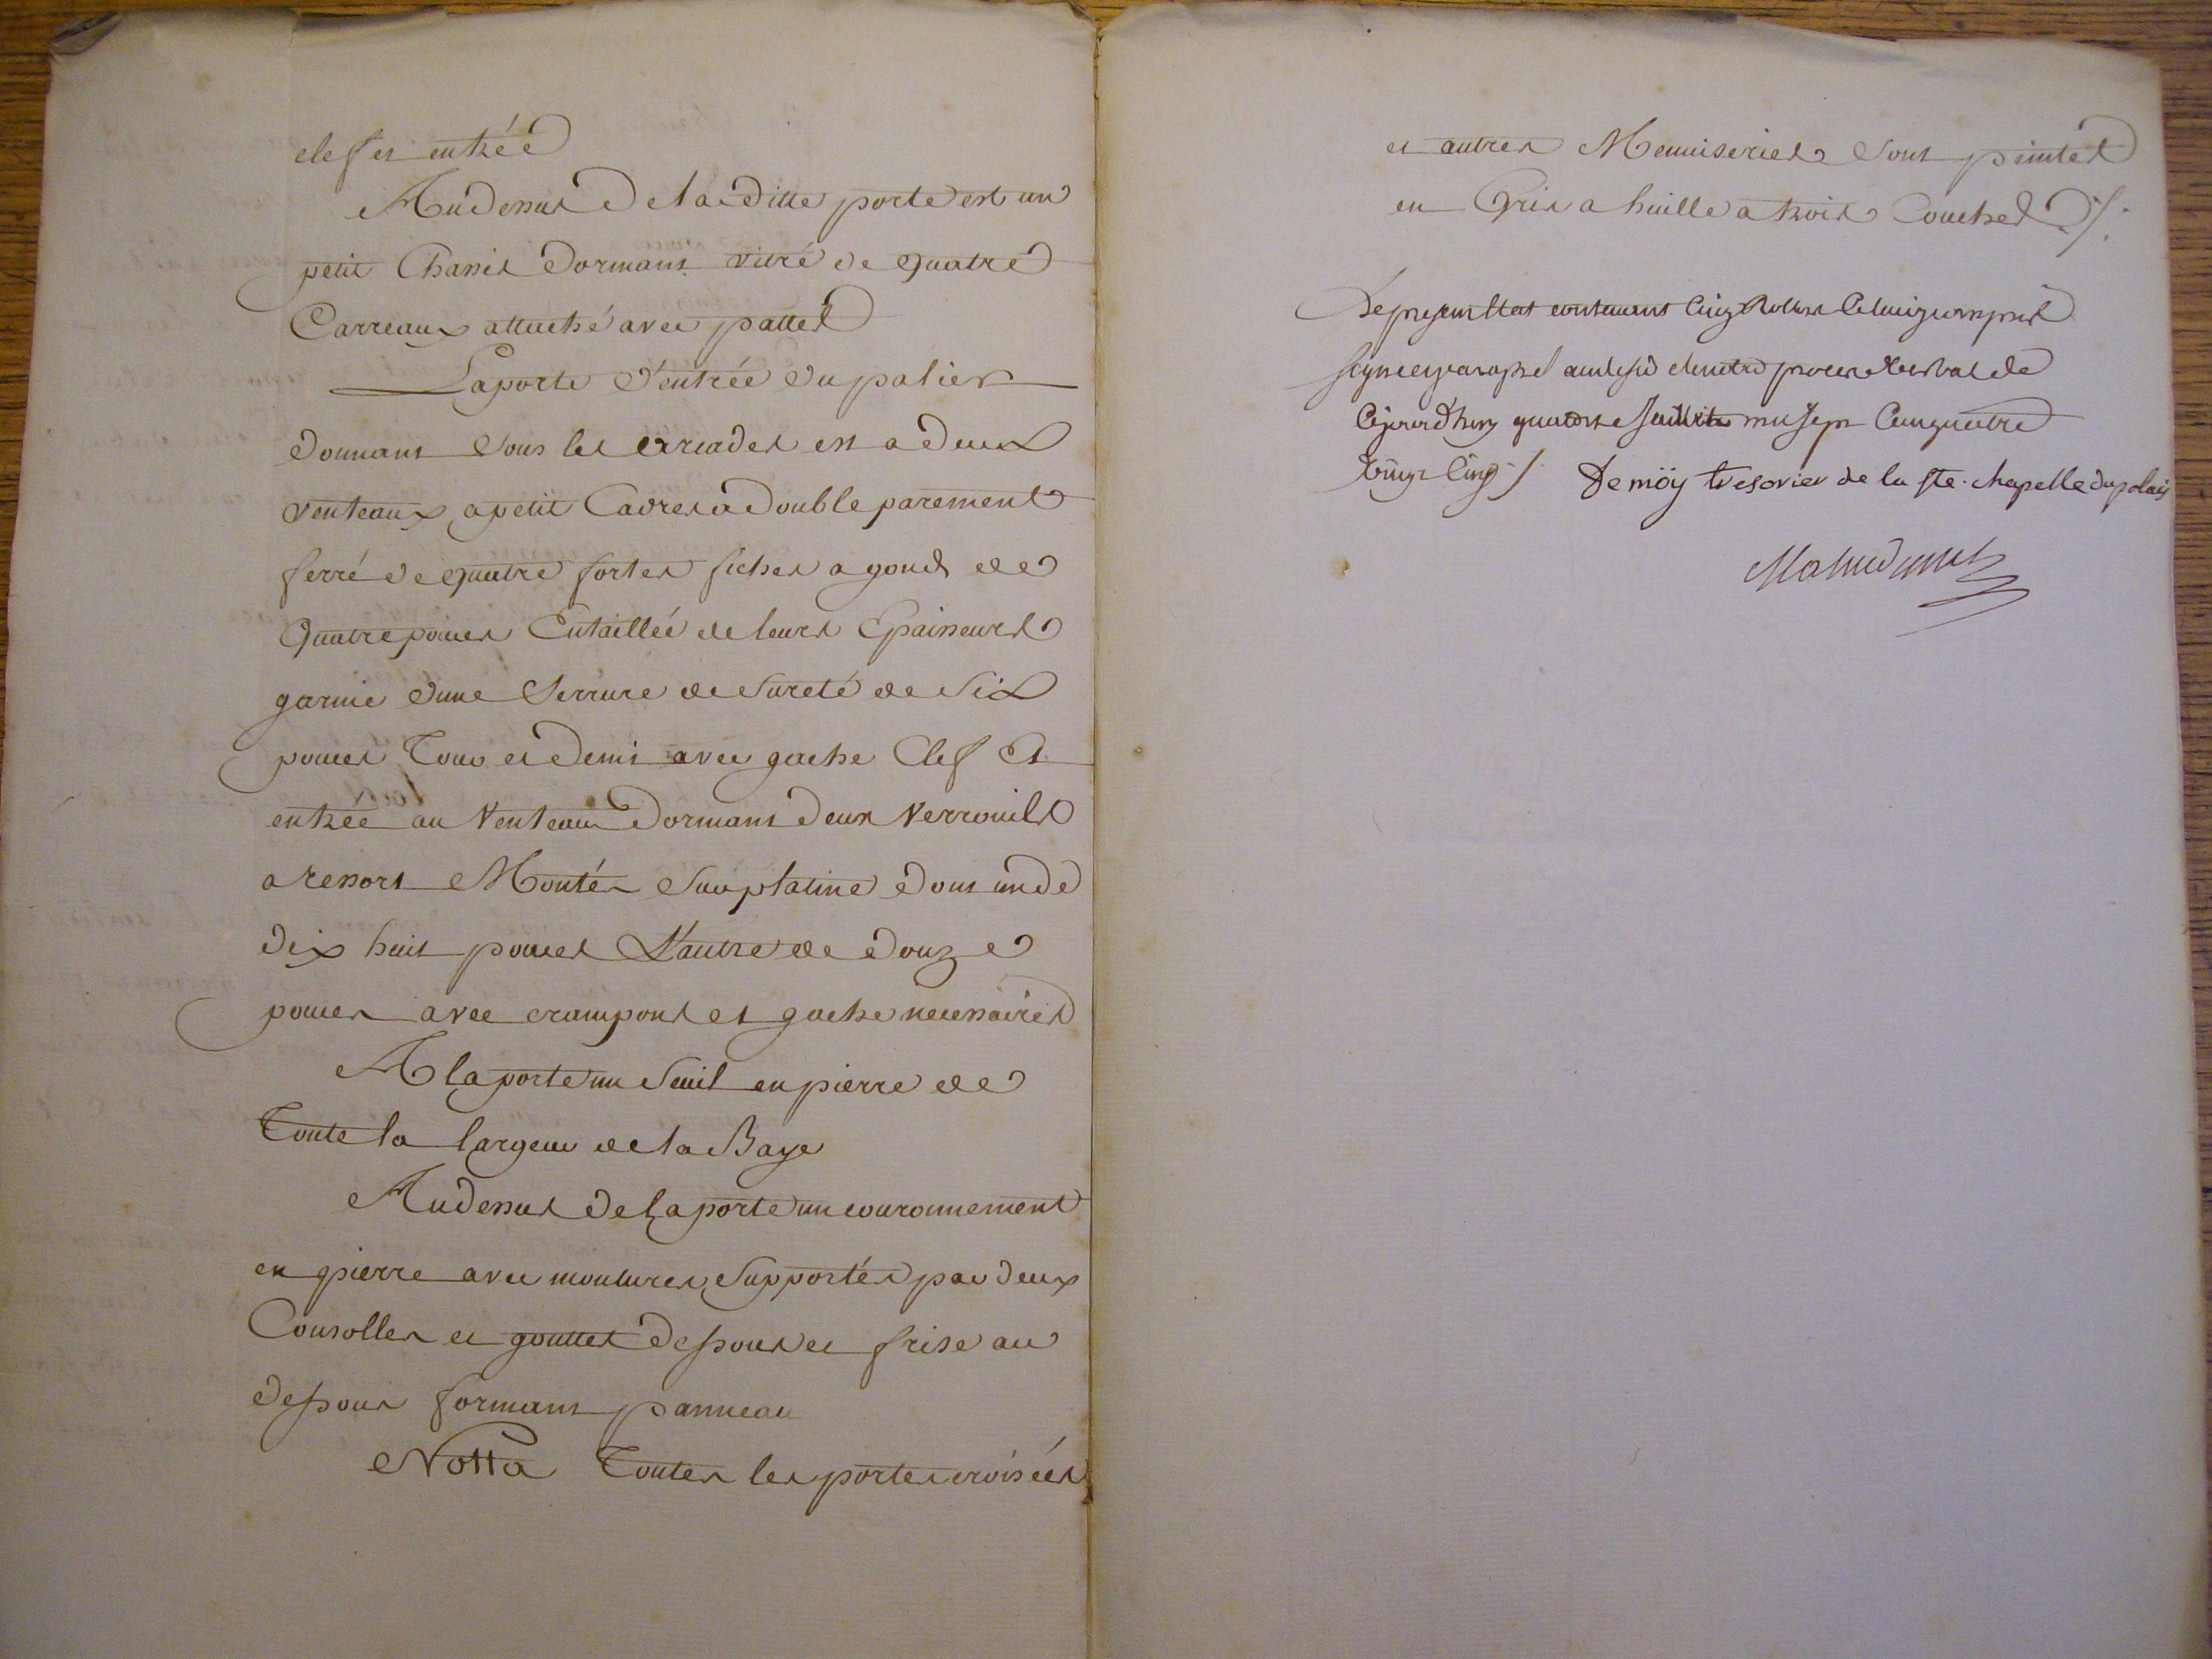 clef et entrée
Audessus De la ditte porte est un
petit Chassis dormant vitré de quatre
Carreaux attaché avec pattes
La porte d'entrée du palier
donnant sous les arcades est a deux
venteaux a petit Cadres a double parement
ferré de quatre fortes fiches a gond de
Quatre pouces Entaillée de leurs Epaisseurs
garnie d'une Serrure de sureté de Six
pouces Tour et demi avec gache Clef Et
entrée au Venteau Dormant deux Verrouils
a ressort Montés sur platine dont un de
dix huit pouces L'autre de douze
pouces avec crampons et gache necessaires
A la porte un Seuil en pierre de
Toute la largeur de la Baye
Audessus de La porte un couronnement
en pierre avec moulures Supportés par deux
Consolles et gouttes dessous et frise au
dessous formant panneau
Notta Toutes les portes croisées
et autres Menuiseries sont peintes
en Gris a huille a trois Couches ./.
Le present Etat contenant Cinq Rolles Celuicy compris
signé et paraphé au desir de notre proces verbal de
Cejourd'huy quatorze mil sept Cent quatre
vingt Cinq ./. De möy tresorier de la ste. chapelle du palais